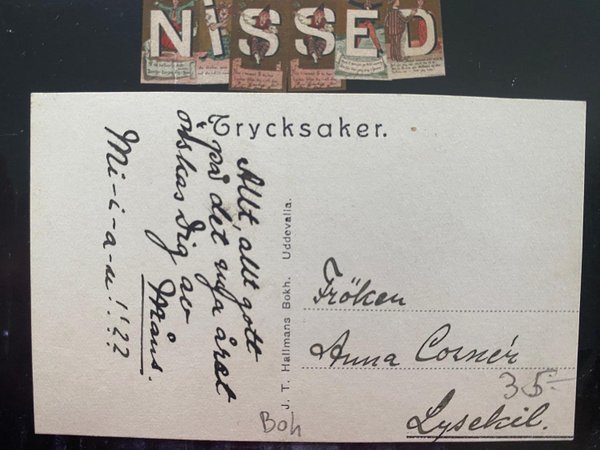 NISSED
Trycksaker.
Allt, allt gott
på det nya året
önskas Dig av
Måns.
Mi-i-a-u!!??
J. T. Hallmans Bokh. Uddevalla.
Fröken
Anna Cornér
35:-
Lysekil.
Boh